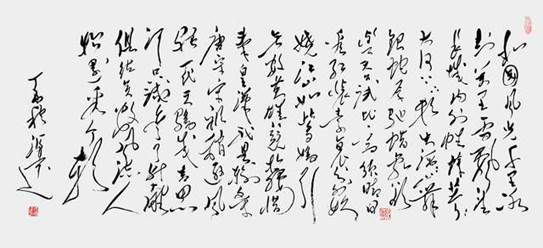 北国风光千里冰
封万里雪飘望
长城内外惟余莽莽
大河上下顿失滔滔山舞
银蛇原驰蜡象欲
与天公试比高须晴日
看红装素裹分外妖
娆江山如此多娇引
无数英雄竞折腰惜
秦皇汉武略输文采
唐宗宋祖稍逊风
骚一代天骄成吉思
汗只识弯弓射大雕
俱往矣数风流人
物还看今朝